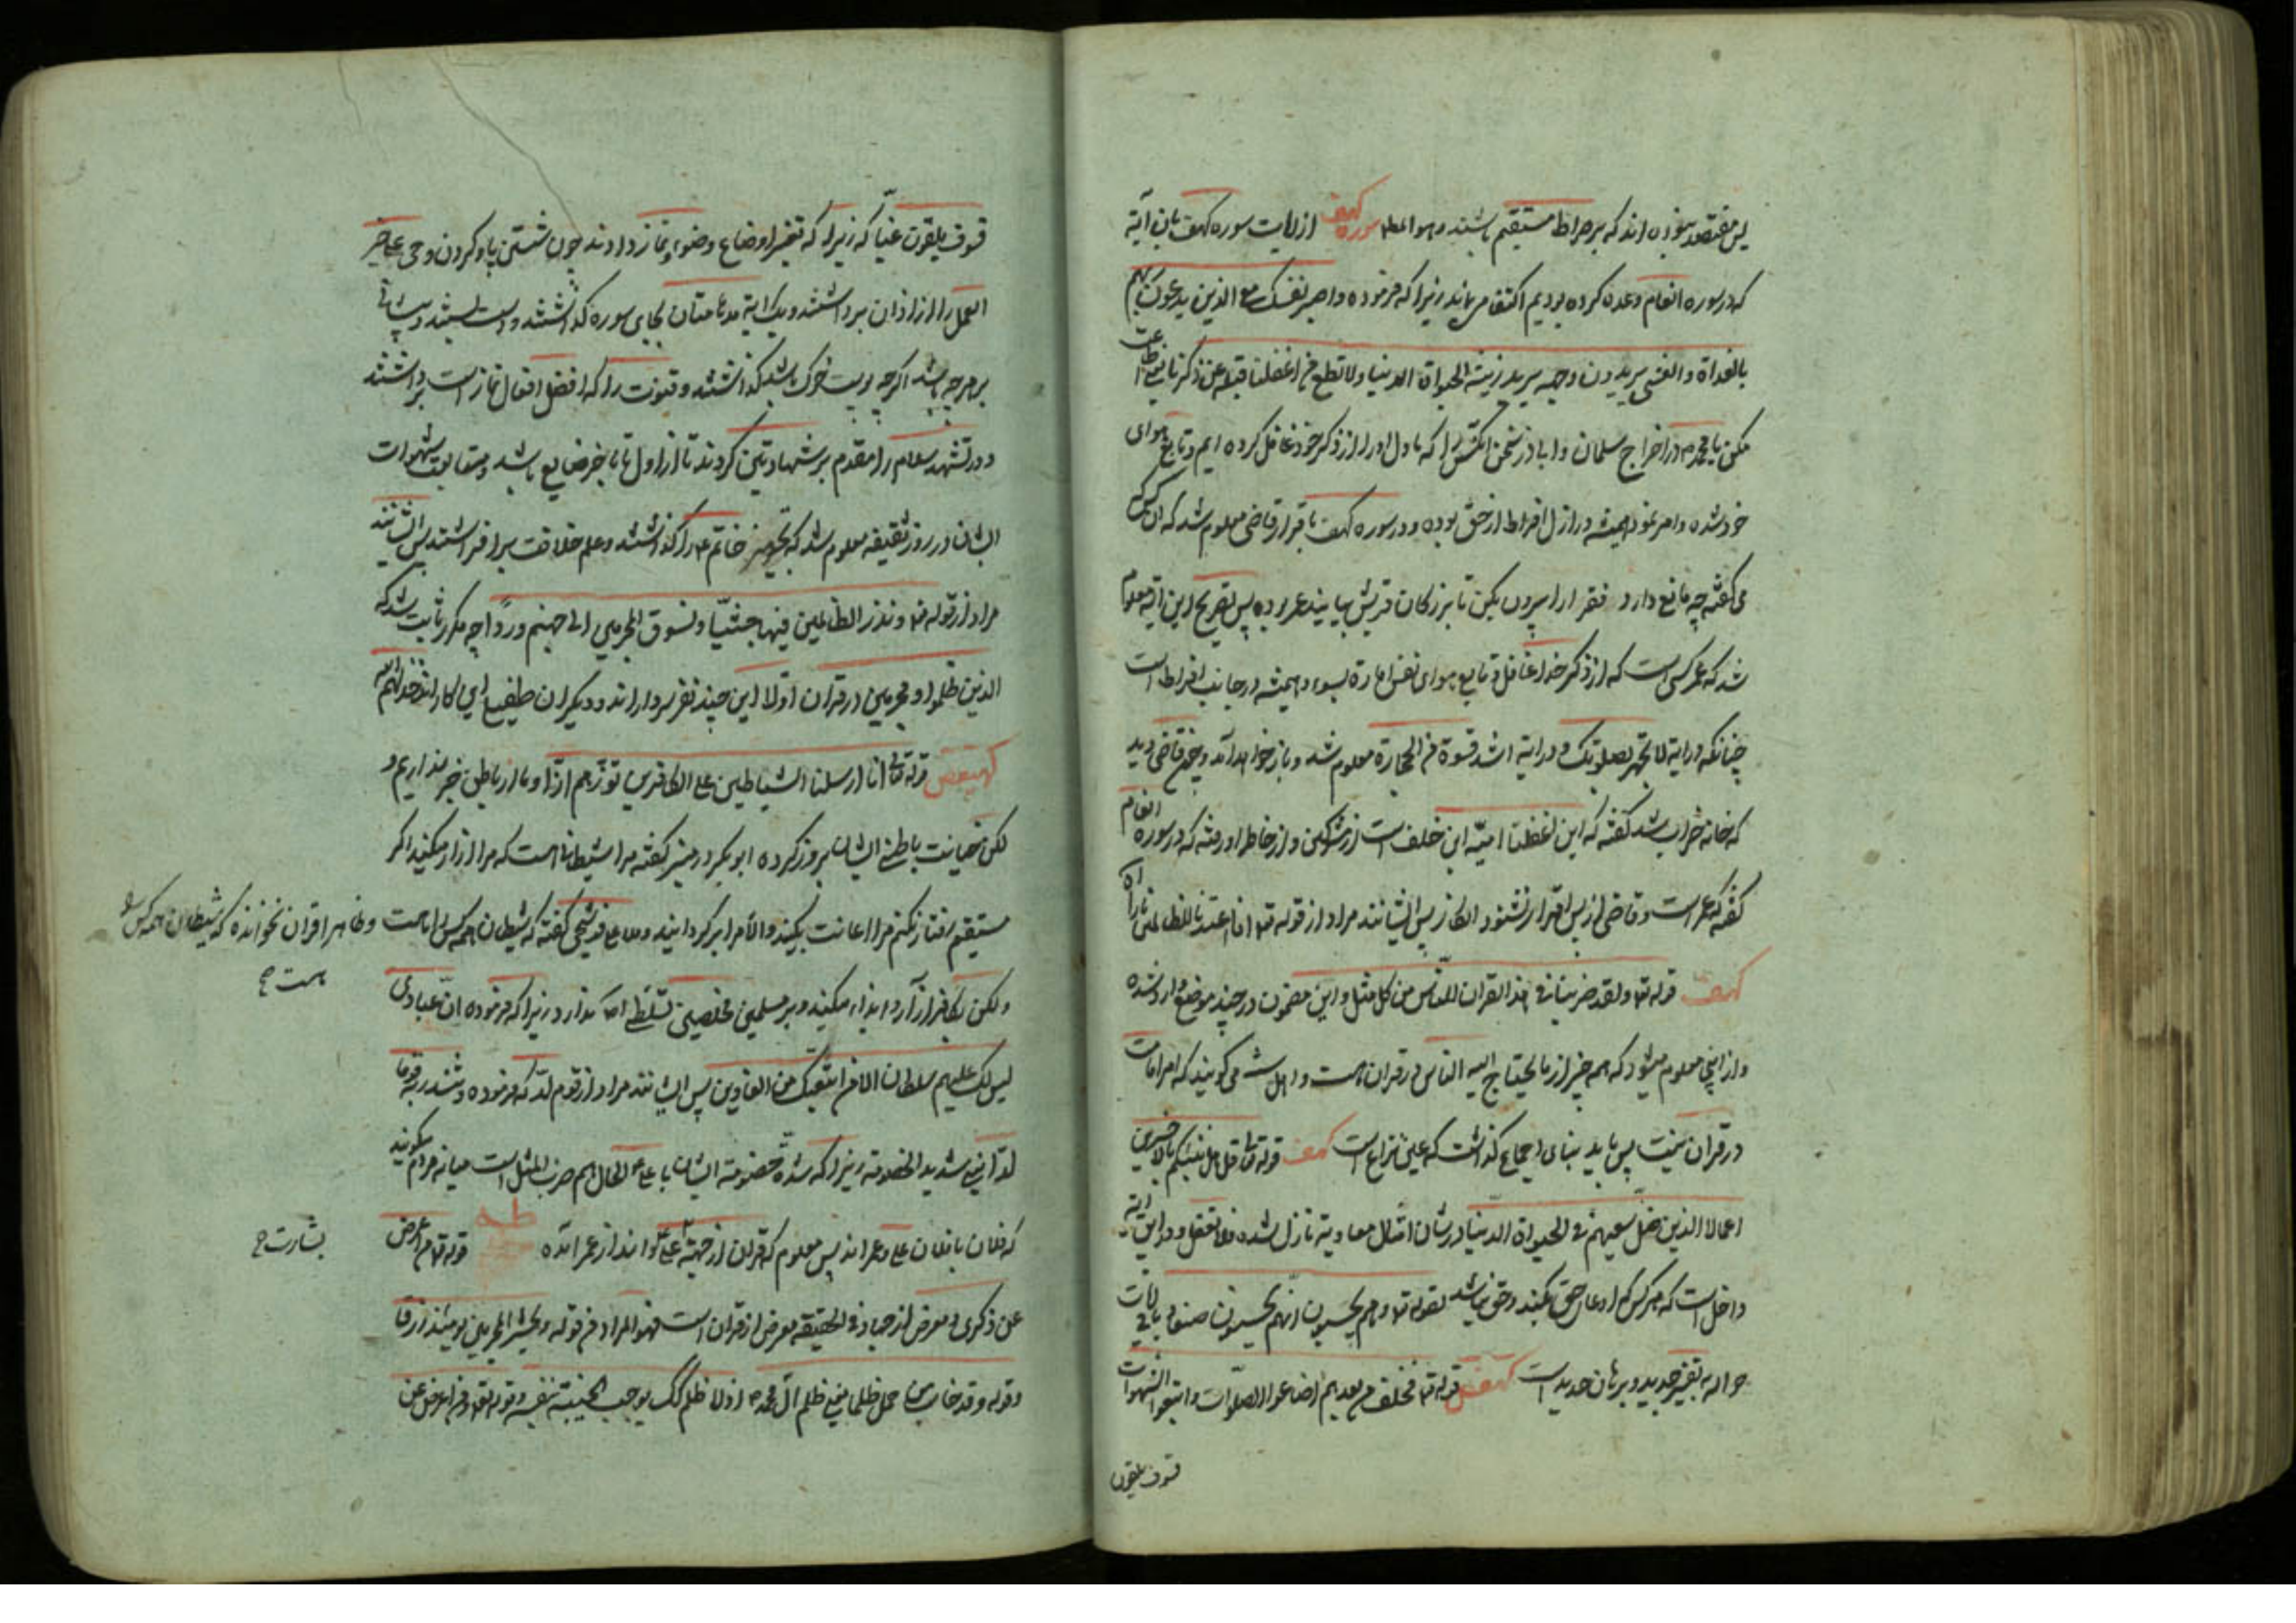 پس مقتصد بوده اند که بر صراط مستقیم باشند و هو المط سوره کهف از ولایت سوره کهف باین آیة
که در سوره انعام وعده کرده بودیم اکتفا می نماید زیرا که فرموده واصبر نفسک مع الذین یدعون ربهم
بالغداة والعشی یریدون وجهه یرید زینة الحیوة الدنیا ولا تطع من اغفلنا قلبه عن ذکرنا یعنی اطاعت
مکن یا محمد در اخراج سلمان و ابی ذر سخن آنکس را که ما دل او را از ذکر خود غافل کرده ایم و تابع هوای
خود شده و امر او همیشه در ازل افراط از حق بوده و در سوره کهف باقرار قاضی معلوم شد که آن کس که
می گفته چه مانع دارد فقرا را بیرون بکن تا بزرکان قریش بیایند عمر بوده پس بصریح این آیه معلوم
شد که عمر کسی است که از ذکر خدا غافل و تابع هوای نفس امارة بسوء و همیشه در جانب افراط است
چنانکه در آیة لا تجهر بصلوتک و در آیة اشد قسوة من الحجارة معلوم شد و باز خواهد آمد و چون قاضی دید
که خانه خراب شد گفته که این اغفلنا امیّة ابن خلف است از مشرکین و از خاطر او رفته که در سوره انعام
گفته که عمر است و قاضی از پس اقرار نشنود انکار پس ایشانند مراد از قوله تع انا اعتدنا للظالمین نارا
کهف قوله تع ولقد ضربنا فی هذا القران للناس من کل مثل و این مضمون در چند موضع وارد شده
و از اینجا معلوم میشود که همه چیز از ما یحتاج الیه الناس در قران هست و اهل سنت می گویند که امر امامت
در قران نیست پس باید بنای اجماع گذاشت که عین نزاع است کهف قوله تعالی قل هل ننبئکم بالاخسرین
اعمالا الذین ضل سعیهم فی الحیوة الدنیا در شان امثال معاویه نازل شده فلا تغفل و در این آیة
داخل است که هر کس که ادعای حق بکند و حق نباشد لقوله تع و هم یحسبون انهم یحسنون صنعا و باقی آیات
حواله به تفسیر جدید و برهان حدید است کهیعص قوله تع فخلف من بعدهم اضاعوا الصلوات واتبعوا الشهوات
فسوف یلقون
فسوف یلقون غیّا که زیرا که تغییر اوضاع وضوء و نماز دادند چون شستن پا و کردن و حی علی خیر
العمل را از اذان برداشتند و یک آیه مدهامتان بجای سوره گذاشتند و دست بستند و پیشانی
بر هرچه باشد اگرچه پوست خوک باشد گذاشتند و قنوت را که افضل افعال نماز است برداشتند
و در تشهد سلام را مقدم بر شهادتین کردند تا از اول تا بآخر ضایع باشد و متابعت شهوات
ایشان در روز سقیفه معلوم شد که تجهیز خاتم ع را گذاشتند و علم خلافت برافراشتند پس ایشانند
مراد از قوله تع ونذر الظالمین فیها جثیّا ونسوق المجرمین الی جهنم وردا چه مکرر ثابت شد که
الذین ظلموا و مجرمین در قران اوّلا این چند نفر سردارانند و دیگران طفیلی این کاراند خذلهم الله
کهیعص قوله تعالی انا ارسلنا الشیاطین علی الکافرین تؤزّهم ازّا و ما از باطن خبر نداریم و
لکن خیانت باطن ایشان بروز کرده ابو بکر در منبر گفته مرا شیطانی هست که مرا ازار میکند اگر
مستقیم رفتار نکنم مرا اعانت بکنید والا مرا برگردانید و ملا علی قوشجی گفته که شیطان همه کس را هست
و ظاهرا قران نخوانده که شیطان همه کس را
هست ح
ولکن کافر از آزار و ایذاء میکند و بر مسلمین مخلصین تسلطی اصلا ندارد زیرا که فرموده ان عبادی
لیس لک علیهم سلطان الا من اتبعک من الغاوین پس ایشانند مراد از قوم لدّ که فرموده وتنذر به قوما
لدّا یعنی شدید الخصومة زیرا که شدّة خصومة ایشان با علی ع الحال هم ضرب المثل است میانه مردم میگویند
که فلان با فلان علی و عمراند پس معلوم که قران از جهة علی ع و انذار عمر آمده طه قوله تع من اعرض
بشارت ح
عن ذکری و معرض از حیات فی الحقیقه معرض از قران است فهو المراد من قوله ونحشر المجرمین یومئذ زرقا
وقوله وقد خاب من حمل ظلما یعنی ظلم آل محمد ص اذ لا ظلم یوجب الخیبة بنفسه وقوله تع ومن اعرض عن